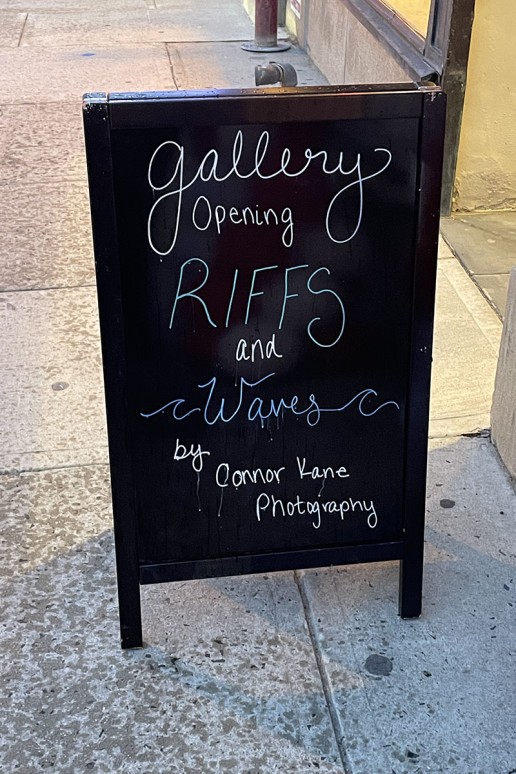 Gallery
Opening
RIFFS
and
Waves
by
Connor Kane
Photography